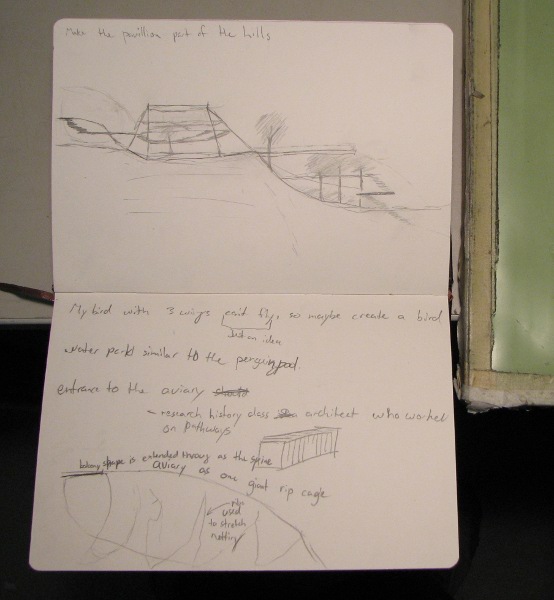 Make the pavillion part of the hills
My bird with 3 wings can't fly, so maybe create a bird
Just an idea
water park similar to the penguin pool.
entrance to the aviary should
– research history class architect who worked
on pathways
shape is extended through as the spine
aviary as one giant rip cagle
rib
used
to stretch
netting